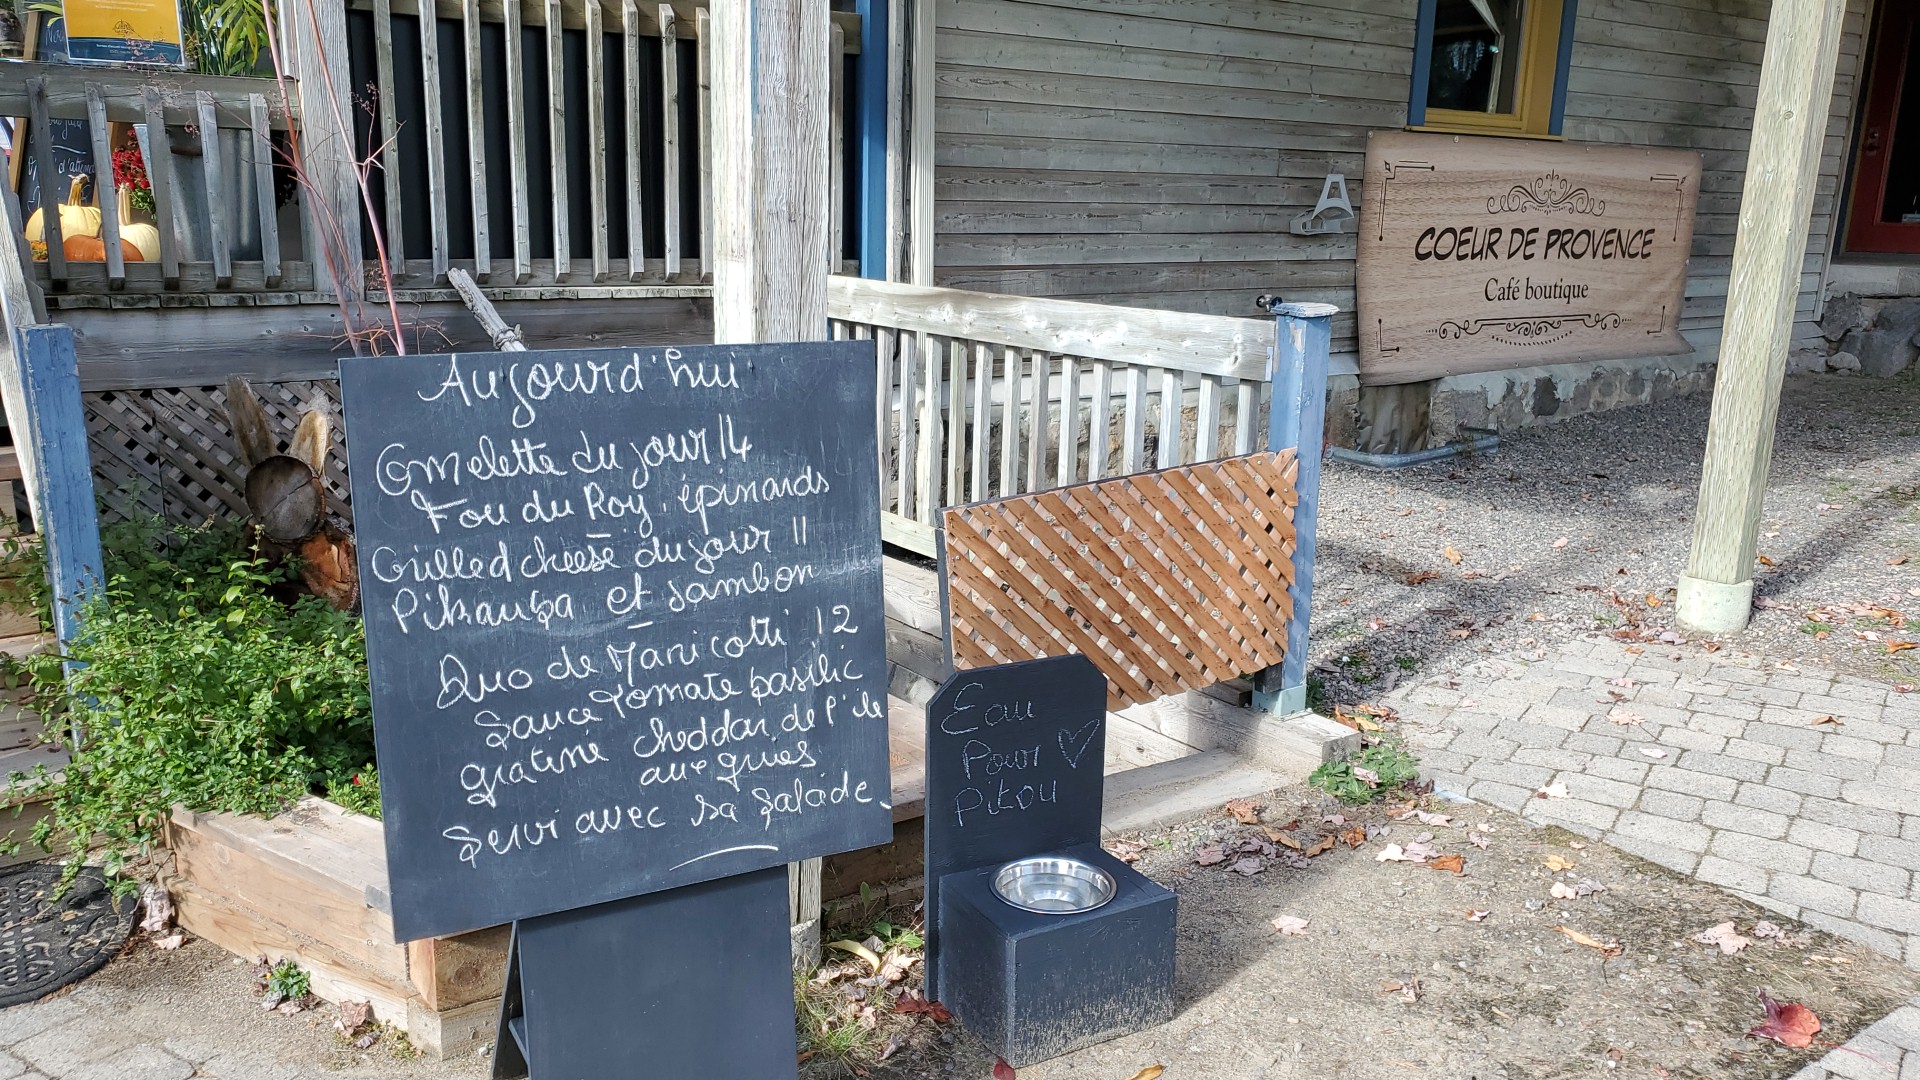 Aujourd'hui
Omelette du jour 14
Fou du Roy, épinards
Grilled cheese du jour 11
Pikauba et jambon
Duo de Manicotti 12
Sauce Tomate basilic
gratiné cheddar de l'ile
aux grues
Servi avec sa salade
Eau
Pour ♡
Pitou
COEUR DE PROVENCE
Café boutique